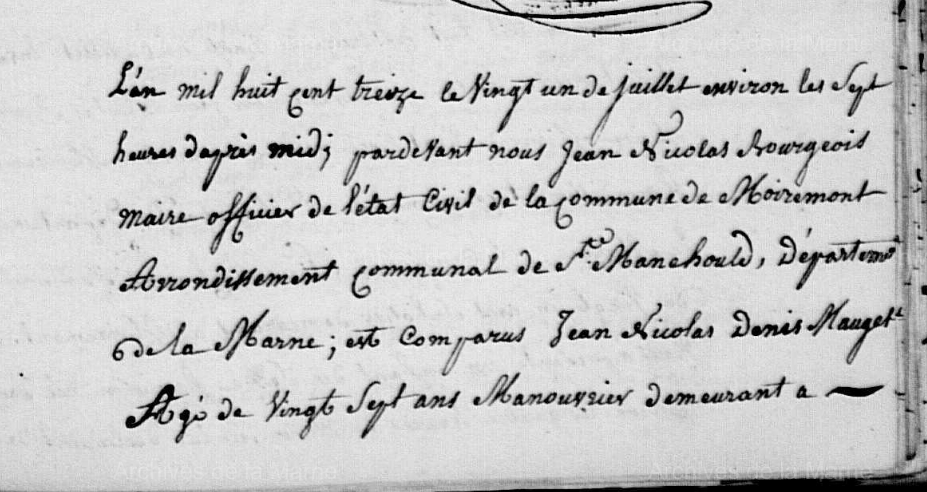 L'an mil huit cent treize le Vingt un de juillet environ les Sept
heures daprès midi pardevant nous Jean Nicolas Bourgeois
maire officier de l'état Civil de la commune de Moiremont
Arrondissement communal de Ste. Manehould, Départemt
de la Marne; est Comparus Jean Nicolas Denis Mauget
Agé de Vingt Sept ans Manouvrier demeurant a
Archives de la Marne
Archives de la Marne